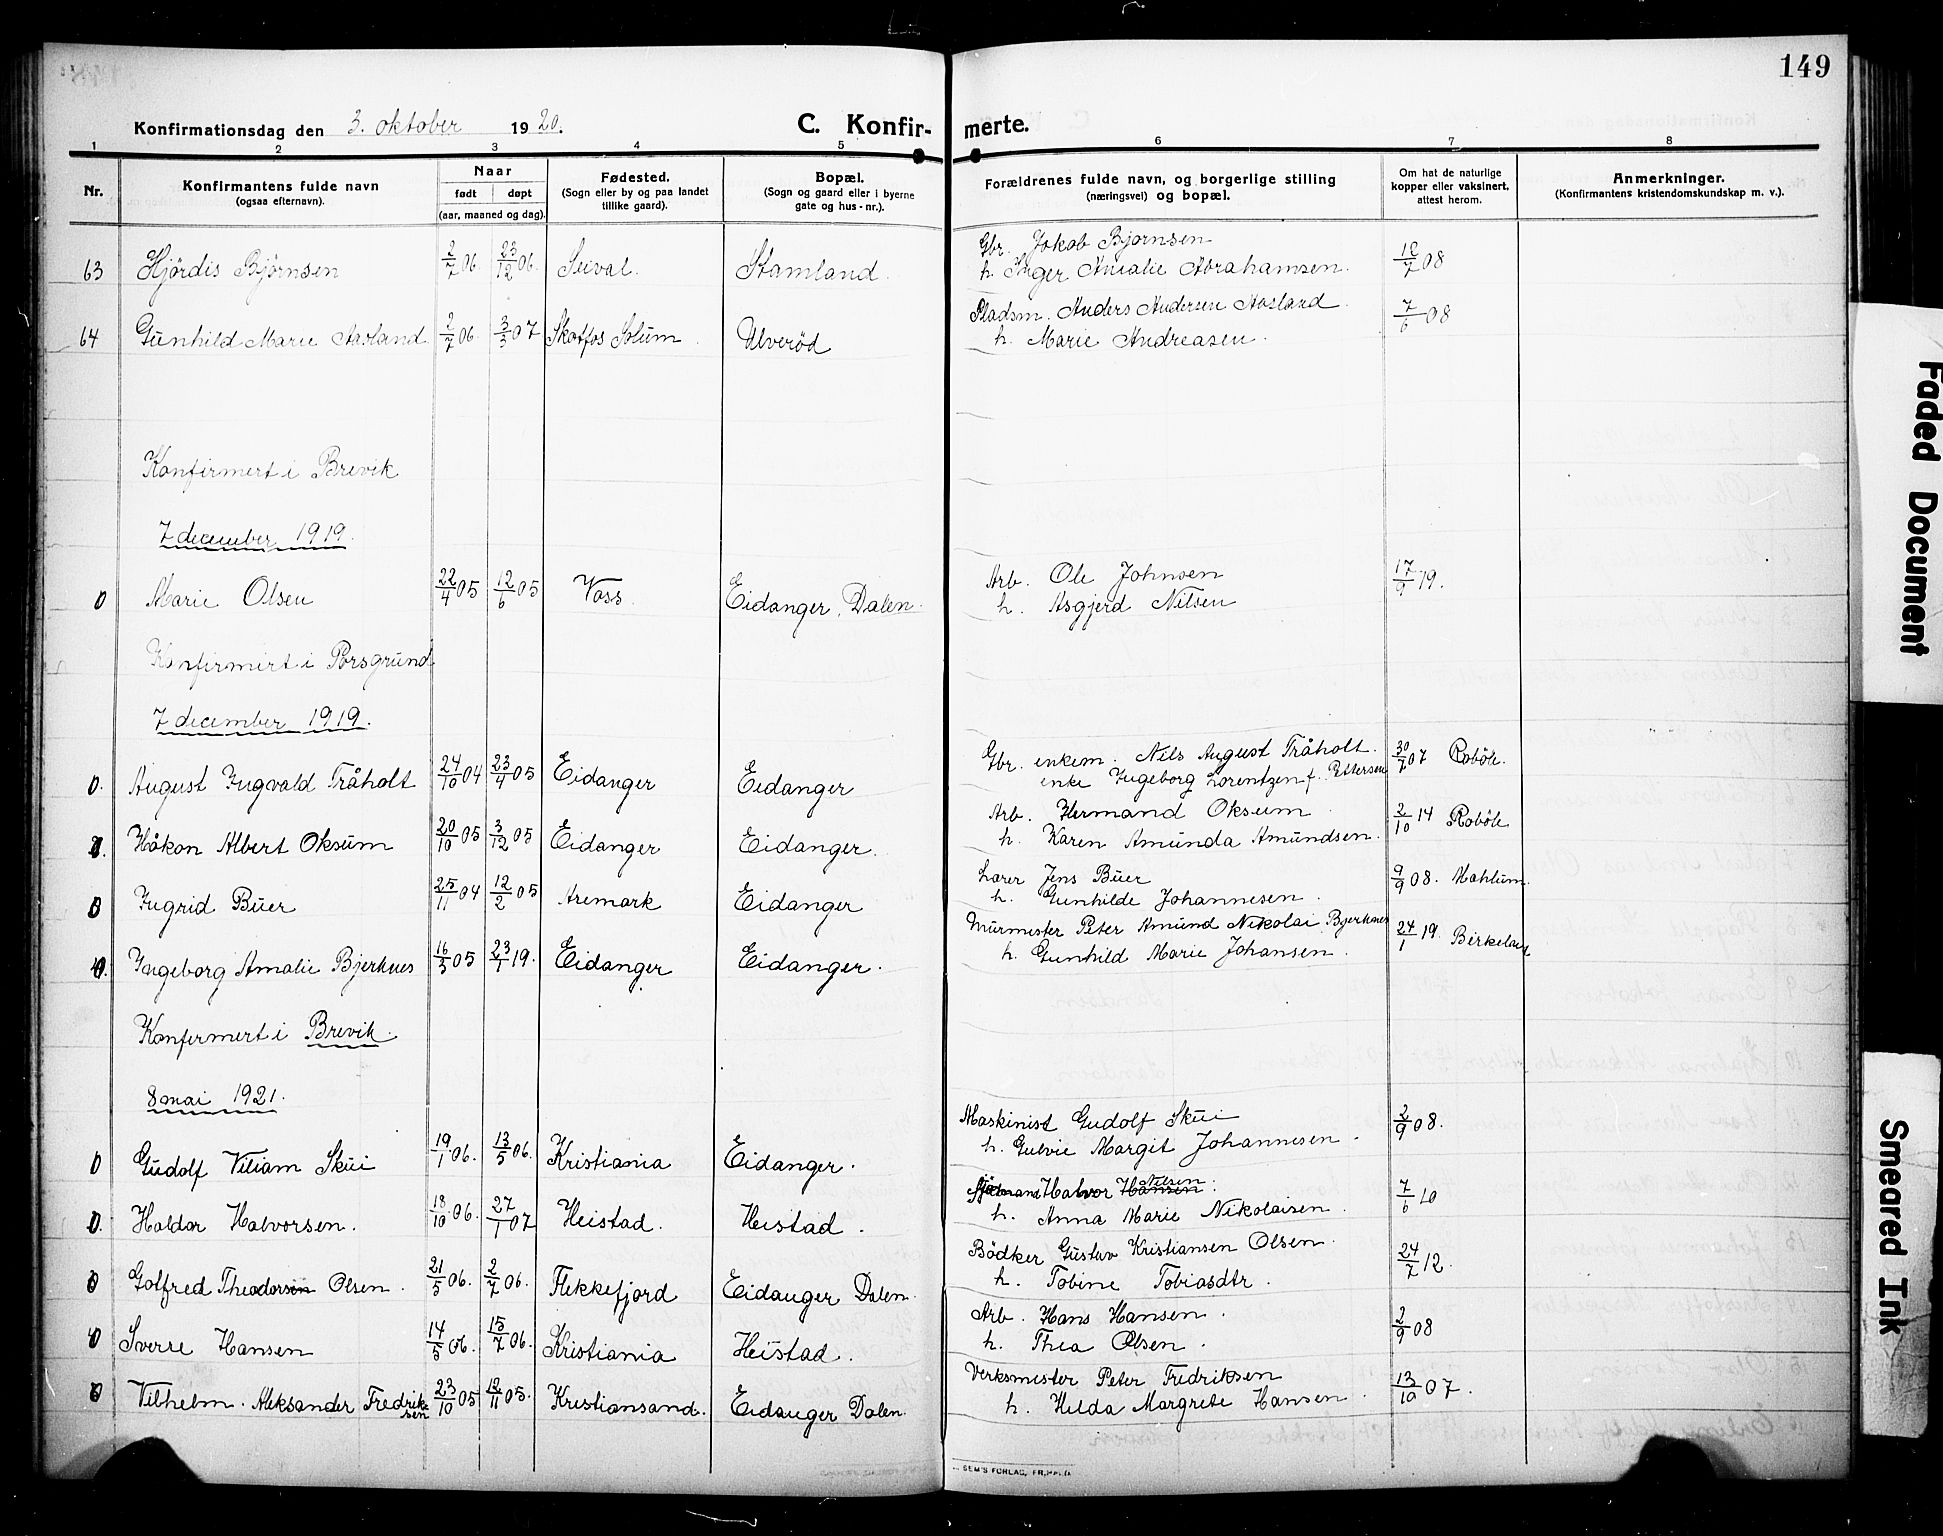 149
Konfirmationsdag den 3. oktober 1920.
C. Konfirmerte.
1 2 3 4 5 6 7 8
Nr.
Konfirmantens fulde navn
(ogsaa efternavn).
Naar
født døpt
(aar, maaned og dag).
Fødested.
(Sogn eller by og paa landet
tillike gaard).
Bopæl.
(Sogn og gaard eller i byerne
gate og hus-nr.).
Forældrenes fulde navn, og borgerlige stilling
(næringsvei) og bopæl.
Om hat de naturlige
kopper eller vaksinert,
attest herom.
Anmerkninger.
(Konfirmantens kristendomskundskap m. v.).
Gbr. Jokob Bjørnsen
63 Hjördis Björnsen 2/7 06. 23/12 06. Stamland. h. Inger Amalie Abrahamsen. 08
Pladsm. Anders Andersen Aasland
64 Gunhild Marie Aasland 2/7 06. 3/3 07 Skotfos Solum Ulveröd h. Marie Andreasen. 7/6 08
Konfirmert i Brevik
7 december 1919.
Arb. Ole Johnsen
0 Marie Olsen 22/4 05 12/6 05 Voss. Eidanger, Dalen. h. Asgjerd Nilsen 17/9 19.
Konfirmert i Porsgrund
7 december 1919.
Gbr. enkem. Nils August Tråholt.
0. August Ingvald Tråholt 24/10 04 23/4 05 Eidanger Eidanger enke Ingeborg Lorentzen f. Pettersen 30/7 07 Roböle.
Arb. Hermand Oksum
Håkon Albert Oksum 20/10 05 3/12 05 Eidanger Eidanger. h. Karen Amunda Amundsen. 2/10 14 Roböle
Lærer Jens Buer
Ingrid Buer 25/11 04 12/2 05 Aremark Eidanger h. Gunhilde Johannesen. 9/9 08.
Murmester Peter Amund Nikolai Bjerknes
Ingeborg Amalie Bjerknes 16/3 05 23/1 19. Eidanger Eidanger. h. Gunhild Marie Johansen. 24/1 19.
Konfermert i Brevik.
8 mai 1921.
Maskinist Gudolf Skui
0 Gudolf Viliam Skui 19/1 06. 13/5 06. Kristiania Eidanger. h. Gulvie Margit Johannesen. 2/9 08.
Sjømand Halvor Hansen Nilsen.
0. Haldor Halvorsen. 18/10 06. 27/1 07 Heistad. Heistad. h. Anna Marie Nikolaisen. 7/6 10
Bödker Gustav Kristiansen Olsen.
Gotfred Theodorsin Olsen. 21/5 06. 2/7 06. Flekkefjord Eidanger Dalen. h. Tobine Tobiasdtr. 24/7 12.
Arb. Hans Hansen.
Sverre Hansen 14/5 06. 15/7 06. Kristiania Heistad. h. Thea Olsen. 2/9 08
Verksmester Peter Fredriksen
Vilhelm. Aleksander Fredriksen 23/10 05 12/11 05. Kristiansand. Eidanger Dalen. h. Hilda Margrete Hansen. 13/10 07.
SEM'S FORLAG,
Faded Document
Smeared Ink